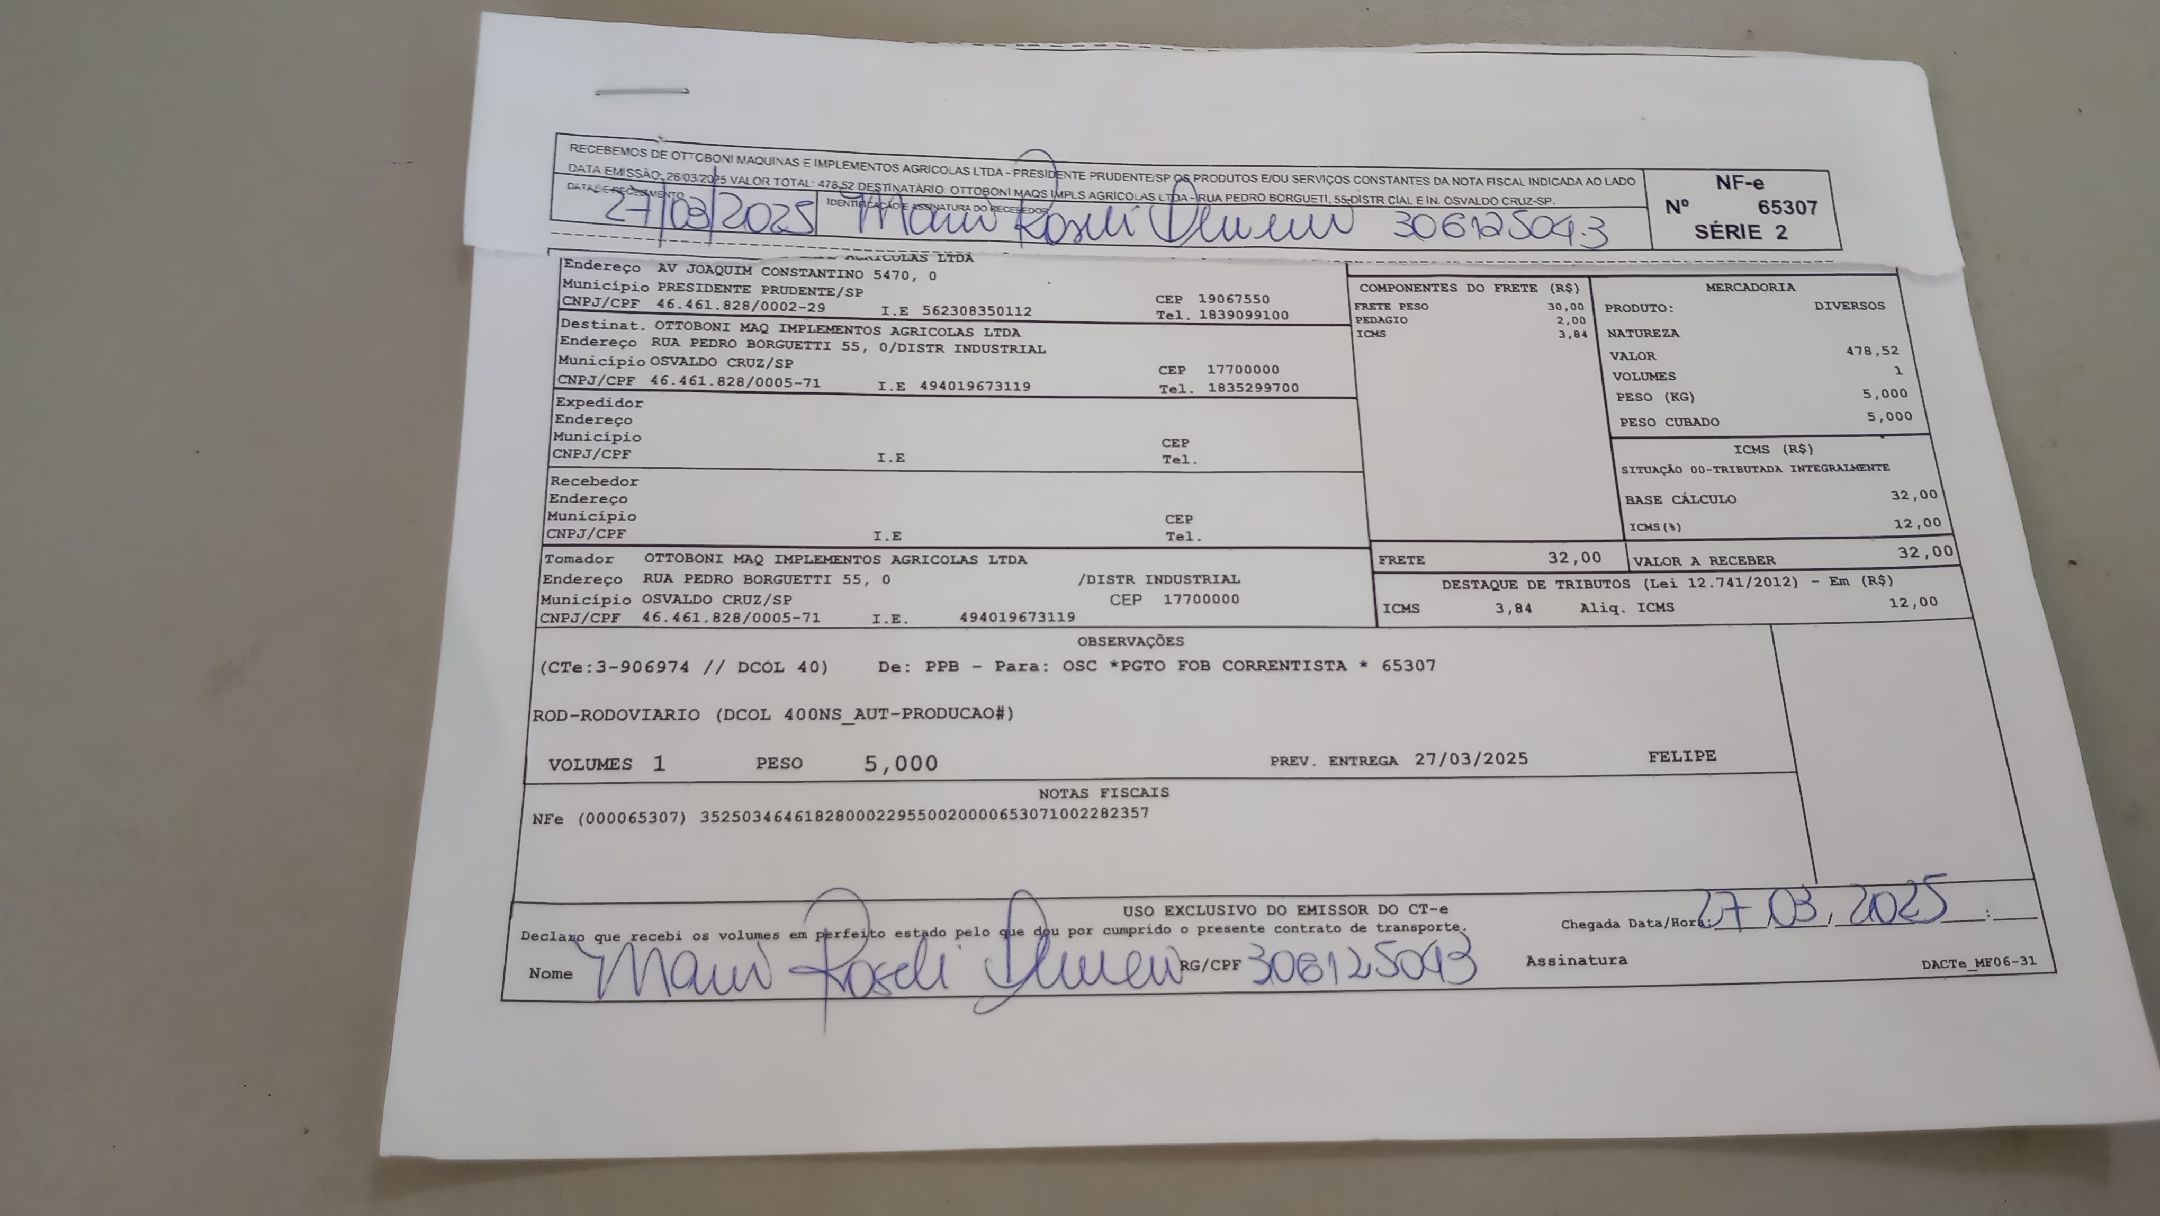 RECEBEMOS DE OTTOBONI MAQUINAS E IMPLEMENTOS AGRICOLAS LTDA - PRESIDENTE PRUDENTE/SP OS PRODUTOS E/OU SERVIÇOS CONSTANTES DA NOTA FISCAL INDICADA AO LADO
DATA EMISSÃO: 26/03/2025 VALOR TOTAL: 478,52 DESTINATÁRIO: OTTOBONI MAQS IMPLS AGRICOLAS LTDA - RUA PEDRO BORGUETI, 55-DISTR CIAL E IN. OSVALDO CRUZ-SP.
DATA DE RECEBIMENTO IDENTIFICAÇÃO E ASSINATURA DO RECEBEDOR
27/03/2025 Roseli 306125043
NF-e
Nº 65307
SÉRIE 2
AGRICOLAS LTDA
Endereço AV JOAQUIM CONSTANTINO 5470, 0
Município PRESIDENTE PRUDENTE/SP CEP 19067550
CNPJ/CPF 46.461.828/0002-29 I.E 562308350112 Tel. 1839099100
Destinat. OTTOBONI MAQ IMPLEMENTOS AGRICOLAS LTDA
Endereço RUA PEDRO BORGUETTI 55, 0/DISTR INDUSTRIAL
Município OSVALDO CRUZ/SP CEP 17700000
CNPJ/CPF 46.461.828/0005-71 I.E 494019673119 Tel. 1835299700
Expedidor
Endereço
Município CEP
CNPJ/CPF I.E Tel.
Recebedor
Endereço
Município CEP
CNPJ/CPF I.E Tel.
Tomador OTTOBONI MAQ IMPLEMENTOS AGRICOLAS LTDA
Endereço RUA PEDRO BORGUETTI 55, 0 /DISTR INDUSTRIAL
Município OSVALDO CRUZ/SP CEP 17700000
CNPJ/CPF 46.461.828/0005-71 I.E. 494019673119
COMPONENTES DO FRETE (R$)
FRETE PESO 30,00
PEDAGIO 2,00
ICMS 3,84
MERCADORIA
PRODUTO: DIVERSOS
NATUREZA
VALOR 478,52
VOLUMES 1
PESO (KG) 5,000
PESO CUBADO 5,000
ICMS (R$)
SITUAÇÃO 00-TRIBUTADA INTEGRALMENTE
BASE CÁLCULO 32,00
ICMS(%) 12,00
FRETE 32,00 VALOR A RECEBER 32,00
DESTAQUE DE TRIBUTOS (Lei 12.741/2012) - Em (R$)
ICMS 3,84 Aliq. ICMS 12,00
OBSERVAÇÕES
(CTe:3-906974 // DCOL 40) De: PPB - Para: OSC *PGTO FOB CORRENTISTA * 65307
ROD-RODOVIARIO (DCOL 400NS_AUT-PRODUCAO#)
VOLUMES 1 PESO 5,000 PREV. ENTREGA 27/03/2025 FELIPE
NOTAS FISCAIS
NFe (000065307) 35250346461828000229550020000653071002282357
USO EXCLUSIVO DO EMISSOR DO CT-e
Declaro que recebi os volumes em perfeito estado pelo que dou por cumprido o presente contrato de transporte.
Chegada Data/Hora: 27 03, 2025 :
Nome Roseli RG/CPF 306125043 Assinatura
DACTe_MF06-31